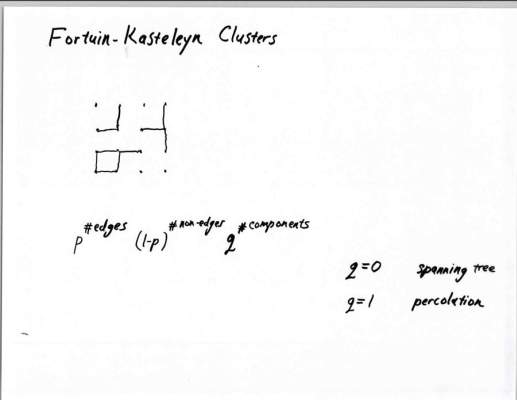 Fortuin-Kasteleyn Clusters
p^#edges (1-p)^#non-edges q^#components
q=0 spanning tree
q=1 percolation